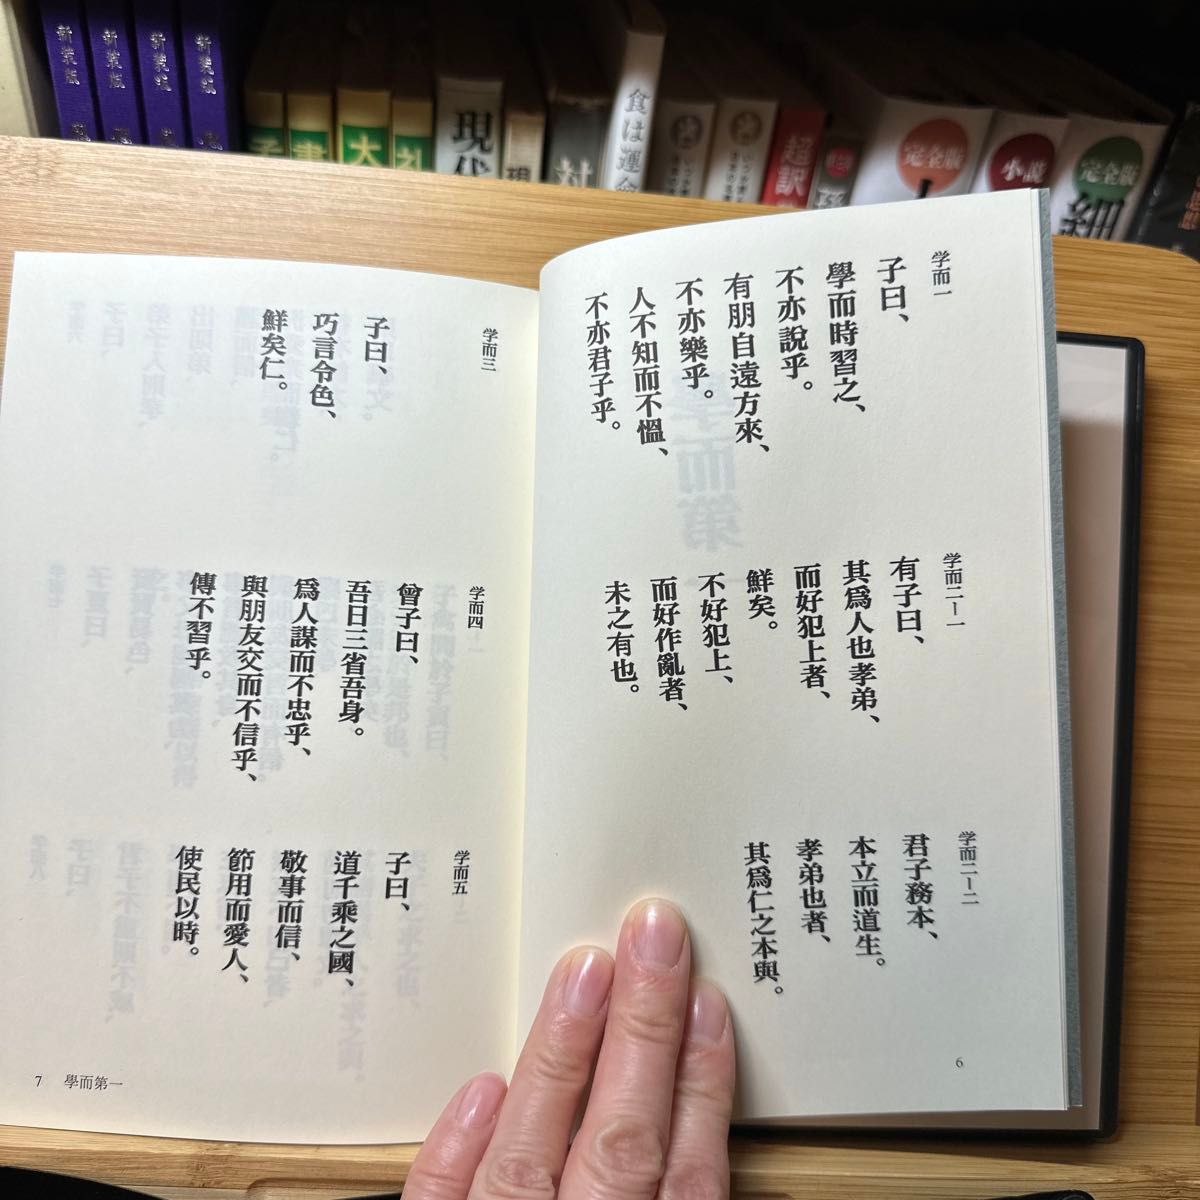 新装版
新装版
新装版
新装版
大
礼
現代
食は運命
超訳
完全版
小説
完全版
細
学而一
子曰、
學而時習之、
不亦說乎。
有朋自遠方來、
不亦樂乎。
人不知而不慍、
不亦君子乎。
学而二ー一
有子曰、
其爲人也孝弟、
而好犯上者、
鮮矣。
不好犯上、
而好作亂者、
未之有也。
学而二ー二
君子務本、
本立而道生。
孝弟也者、
其爲仁之本與。
6
学而三
子曰、
巧言令色、
鮮矣仁。
学而四
曾子曰、
吾日三省吾身。
爲人謀而不忠乎、
與朋友交而不信乎、
傳不習乎。
学而五
子曰、
道千乘之國、
敬事而信、
節用而愛人、
使民以時。
7 學而第一